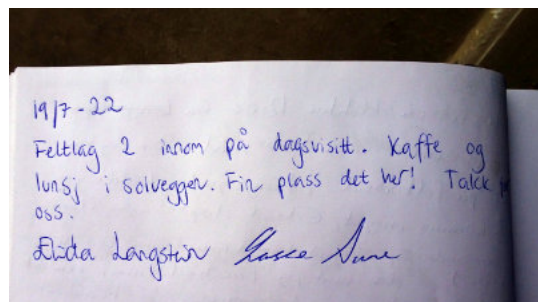 19/7-22
Feltlag 2 innom på dagsvisitt. Kaffe og
lunsj i solveggen. Fin plass det her! Takk for
oss.